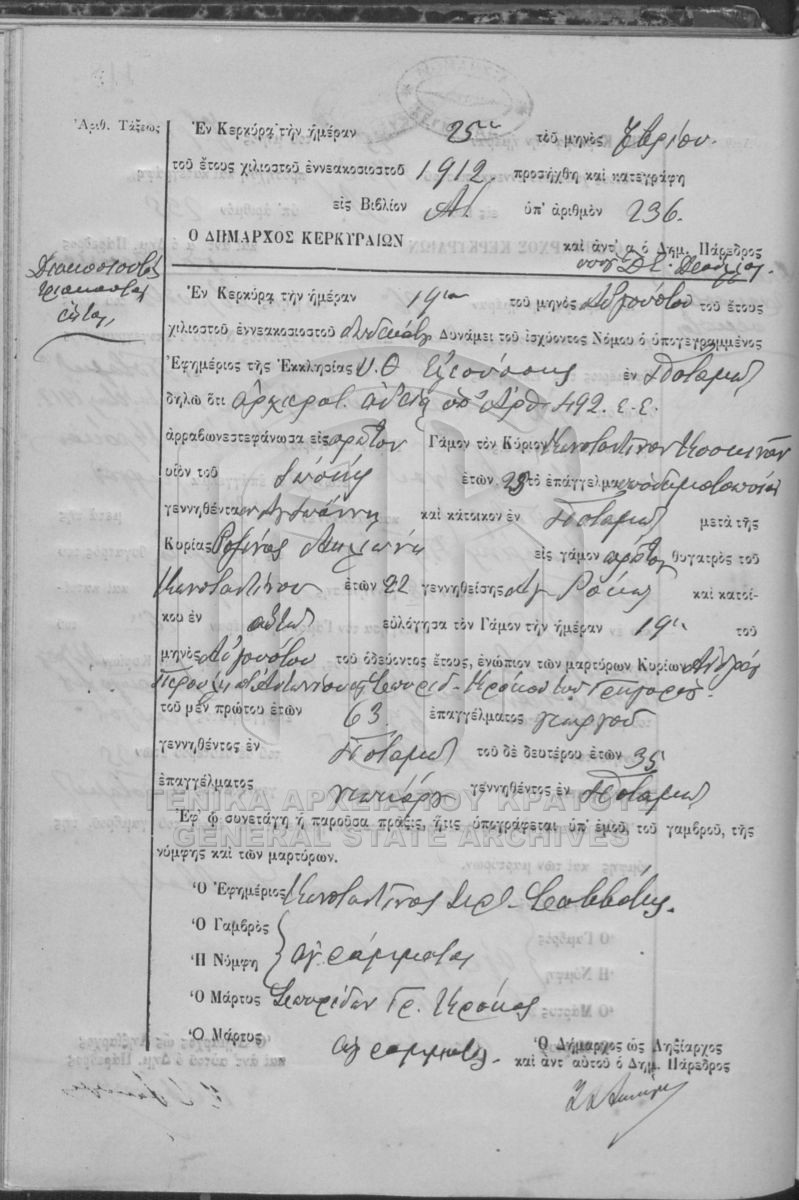 Ἀριθ. Τάξεως
Ἐν Κερκύρᾳ τὴν ἡμέραν 25ην τοῦ μηνὸς 7βρίου
τοῦ ἔτους χιλιοστοῦ ἐννεακοσιοστοῦ 1912. προσήχθη καὶ κατεγράφη
εἰς Βιβλίον Αʹ. ὑπ' ἀριθμὸν 236.
Ὁ ΔΗΜΑΡΧΟΣ ΚΕΡΚΥΡΑΙΩΝ καὶ ἀντ' α ὁ Δημ. Πάρεδρος
Διακοσιοστὸς
τριακοστὸς
Ἐν Κερκύρᾳ τὴν ἡμέραν 19ην τοῦ μηνὸς Αὐγούστου τοῦ ἔτους
χιλιοστοῦ ἐννεακοσιοστοῦ δωδεκάτου Δυνάμει τοῦ ἰσχύοντος Νόμου ὁ ὑπογεγραμμένος
Ἐφημέριος τῆς Ἐκκλησίας Υ. Θ. Ἐλεούσης ἐν Ποταμῷ
δηλῶ ὅτι ἀρχιερατ. ἀδείᾳ ὑπ' Ἀρθ. 492. ε. ε.
ἀρραβωνεστεφάνωσα εἰς πρῶτον Γάμον τὸν Κύριον Κωνσταντῖνον
υἱὸν τοῦ ἐτῶν 23 τὸ ἐπάγγελμα ὑποδηματοποιὸν
γεννηθέντα καὶ κάτοικον ἐν Ποταμῷ μετὰ τῆς
Κυρίας εἰς γάμον πρῶτον θυγατρὸς τοῦ
Κωνσταντίνου ἐτῶν 22 γεννηθείσης Ἁγ. Ρόκῳ καὶ κατοί-
κου ἐν αὐτῷ εὐλόγησα τὸν Γάμον τὴν ἡμέραν 19ην τοῦ
μηνὸς Αὐγούστου τοῦ ὁδεύοντος ἔτους, ἐνώπιον τῶν μαρτύρων Κυρίων Ἀνδρέα
Ἀντωνίου Σπυρίδ. Κρόκου τοῦ Γρηγορίου
τοῦ μὲν πρώτου ἐτῶν 63 ἐπαγγέλματος γεωργοῦ
γεννηθέντος ἐν Ποταμῷ τοῦ δὲ δευτέρου ἐτῶν 35
ἐπαγγέλματος γεννηθέντος ἐν Ποταμῷ
ΓΕΝΙΚΑ ΑΡΧΕΙΑ ΤΟΥ ΚΡΑΤΟΥΣ
Ἐφ' ᾧ συνετάγη ἡ παροῦσα πρᾶξις, ἥτις ὑπογράφεται ὑπ' ἐμοῦ, τοῦ γαμβροῦ, τῆς
GENERAL STATE ARCHIVES
νύμφης καὶ τῶν μαρτύρων.
Ὁ Ἐφημέριος Κωνσταντῖνος
Ὁ Γαμβρὸς
Ἡ Νύμφη ἀγράμματοι
Ὁ Μάρτυς Σπυρίδων Γρ. Κρόκος
Ὁ Μάρτυς ἀγράμματος.
Ὁ Δήμαρχος ὡς Ληξίαρχος
καὶ ἀντ' αὐτοῦ ὁ Δημ. Πάρεδρος